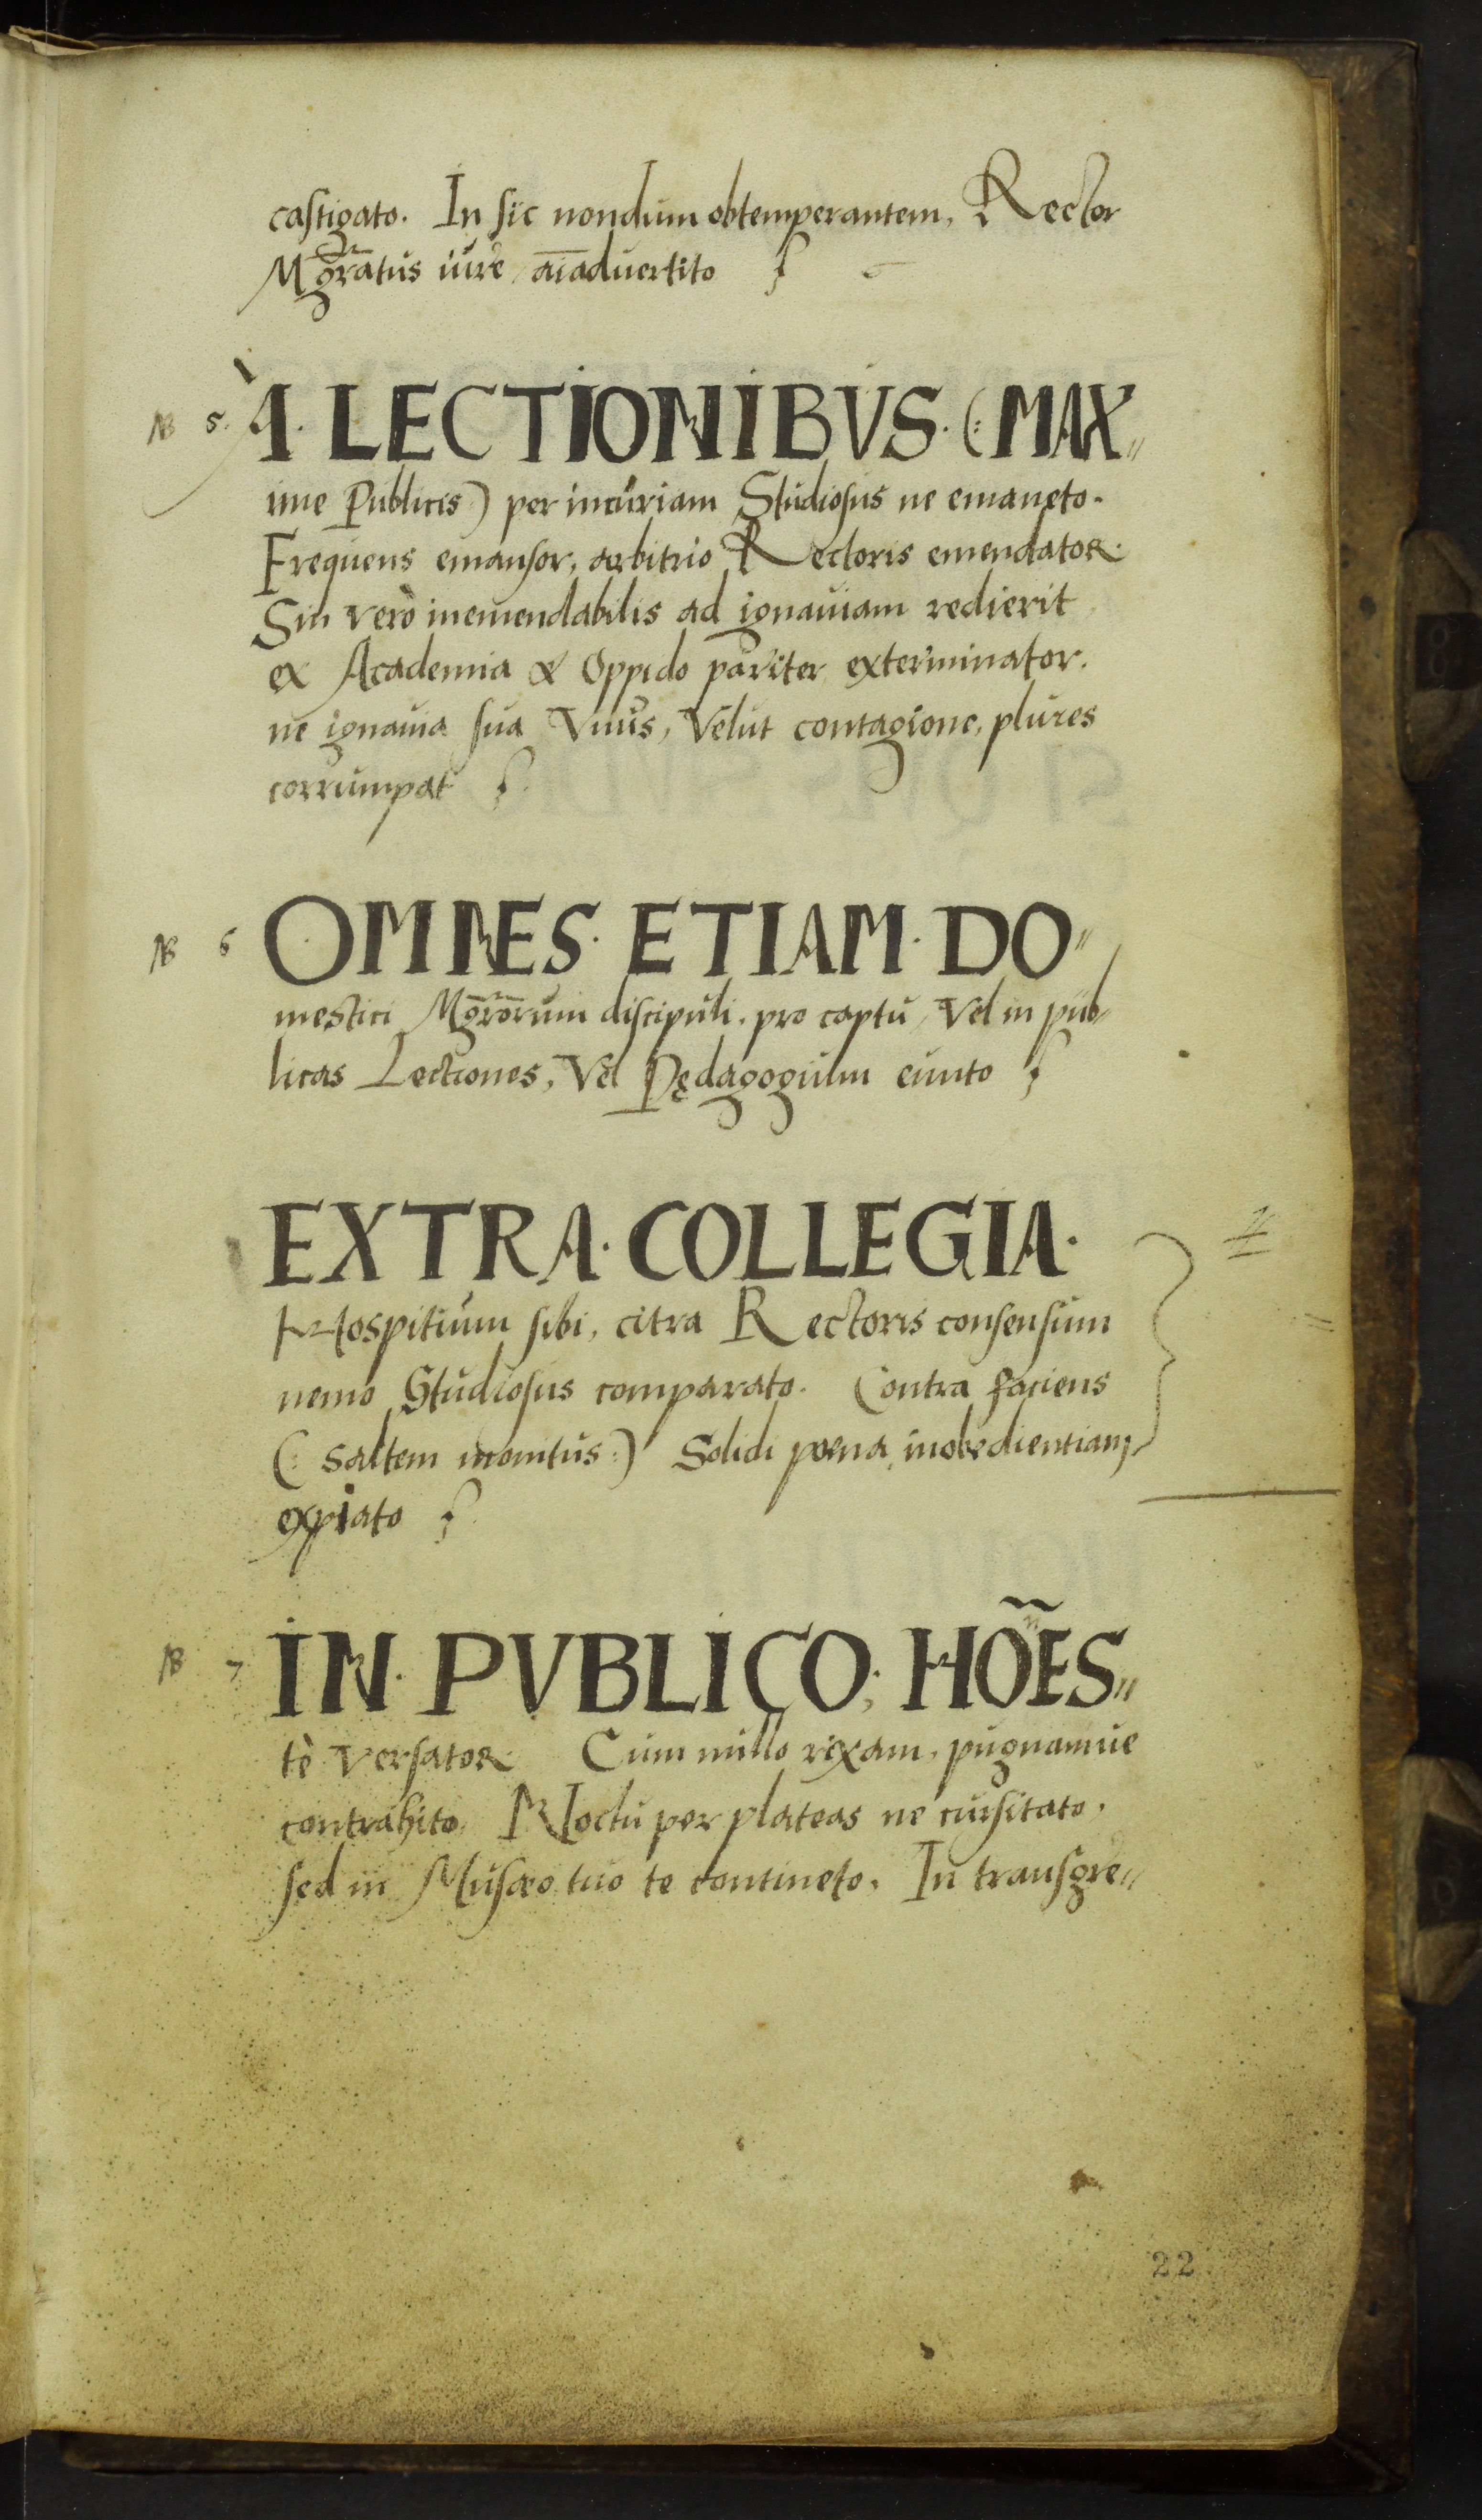 castigato. In sic nondum obtemperantem, Rector
Mgr̄atus iure aīaduertito
NB 5. A. LECTIONIBVS. (: MAX〃
ime Publicis) per incuriam Studiosus ne emaneto.
Frequens emansor, arbitrio Rectoris emendator.
Sin verò inemendabilis ad ignauiam redierit
ex Academia & Oppido pariter exterminator.
ne ignauia sua Vnus, Velut contagione, plures
corrumpat
NB 6 OMNES. ETIAM. DO〃
mestici Mgr̄orum discipuli. pro captu, Vel in pub〃
licas Lectiones, Vel Pędagogium eunto
EXTRA. COLLEGIA.
Hospitium sibi, citra Rectoris consensum
nemo Studiosus comparato. Contra faciens
(: saltem monitus :) Solidi poena, inobedientiam
expiato
NB 7 IN. PVBLICO. HOÑES〃
tè versator. Cum nullo rixam, pugnamue
contrahito. Noctu per plateas ne cursitato.
sed in Musæo tuo te contineto. In transgre〃
22